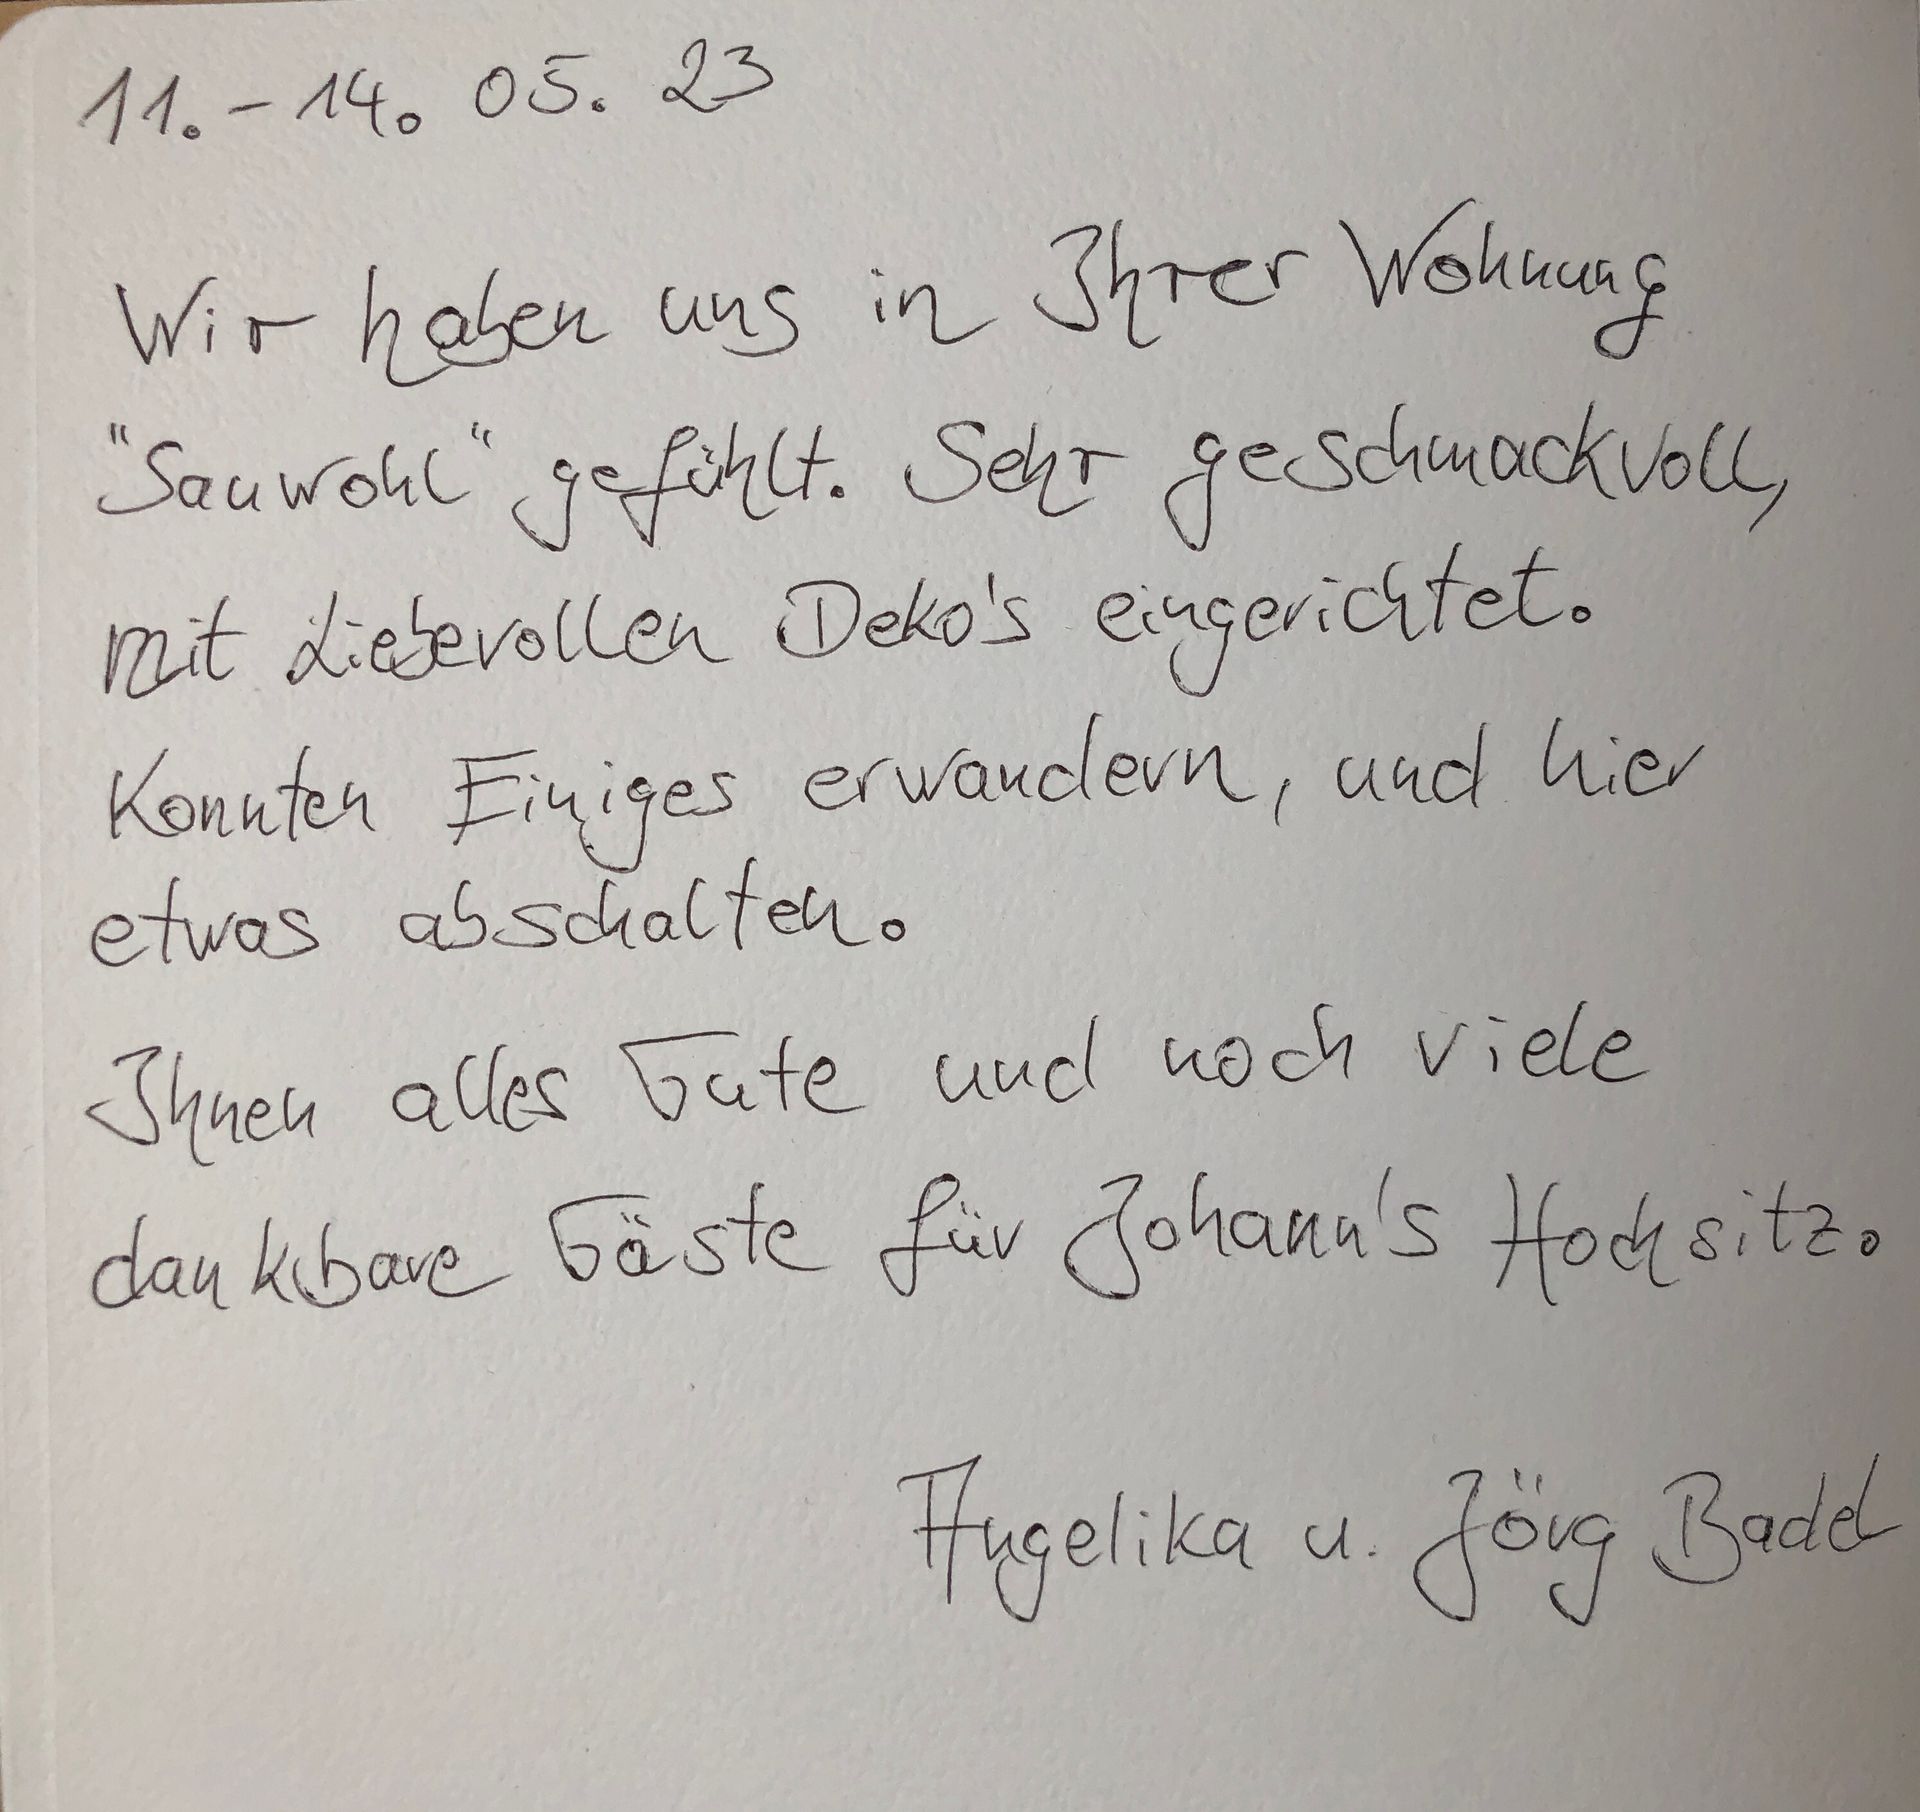 11.-14. 05. 23
Wir haben uns in Ihrer Wohnung
"Sauwohl" gefühlt. Sehr geschmackvoll,
mit Liebevollen Deko's eingerichtet.
Konnten Einiges erwandern, und hier
etwas abschalten.
Ihnen alles Gute und noch viele
dankbare Gäste für Johann's Hochsitz.
Angelika u. Jörg